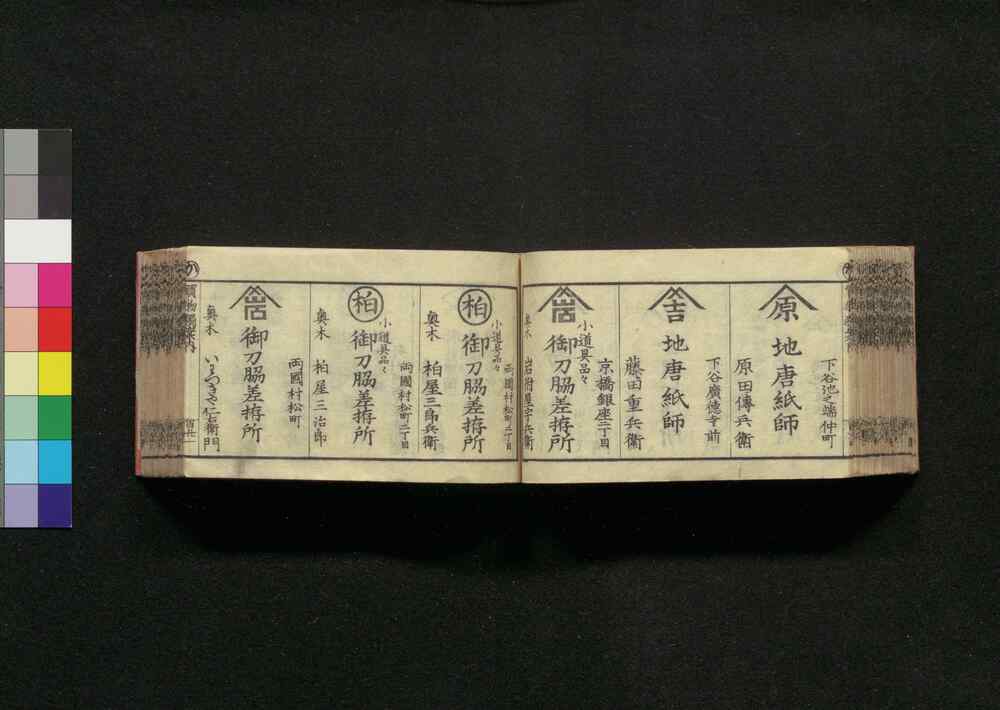 下谷池之端仲町
原
地唐紙師
原田傳兵衛
下谷廣徳寺前
吉
地唐紙師
藤田重兵衛
京橋銀座二丁目
小道具品々
御刀脇差拵所
奥木
岩附屋宇兵衛
両國村松町二丁目
小道具品々
柏
御刀脇差拵所
奥木
柏屋三郎兵衛
両國村松町二丁目
小道具品々
柏
御刀脇差拵所
奥木
柏屋三治郎
両國村松町
御刀脇差拵所
奥木
いわつきや仁左衛門